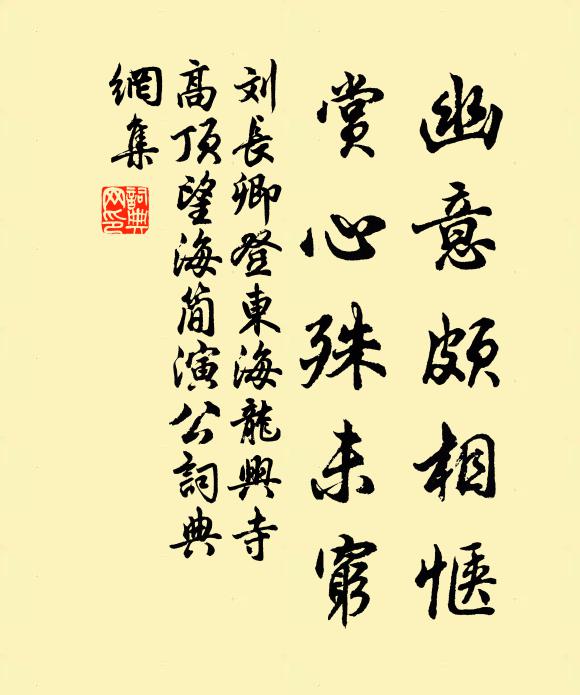 幽意頗相惬
賞心殊未窮
刘長卿登東海龍興寺
高頂望海簡演公詞典
網集
詞典網印